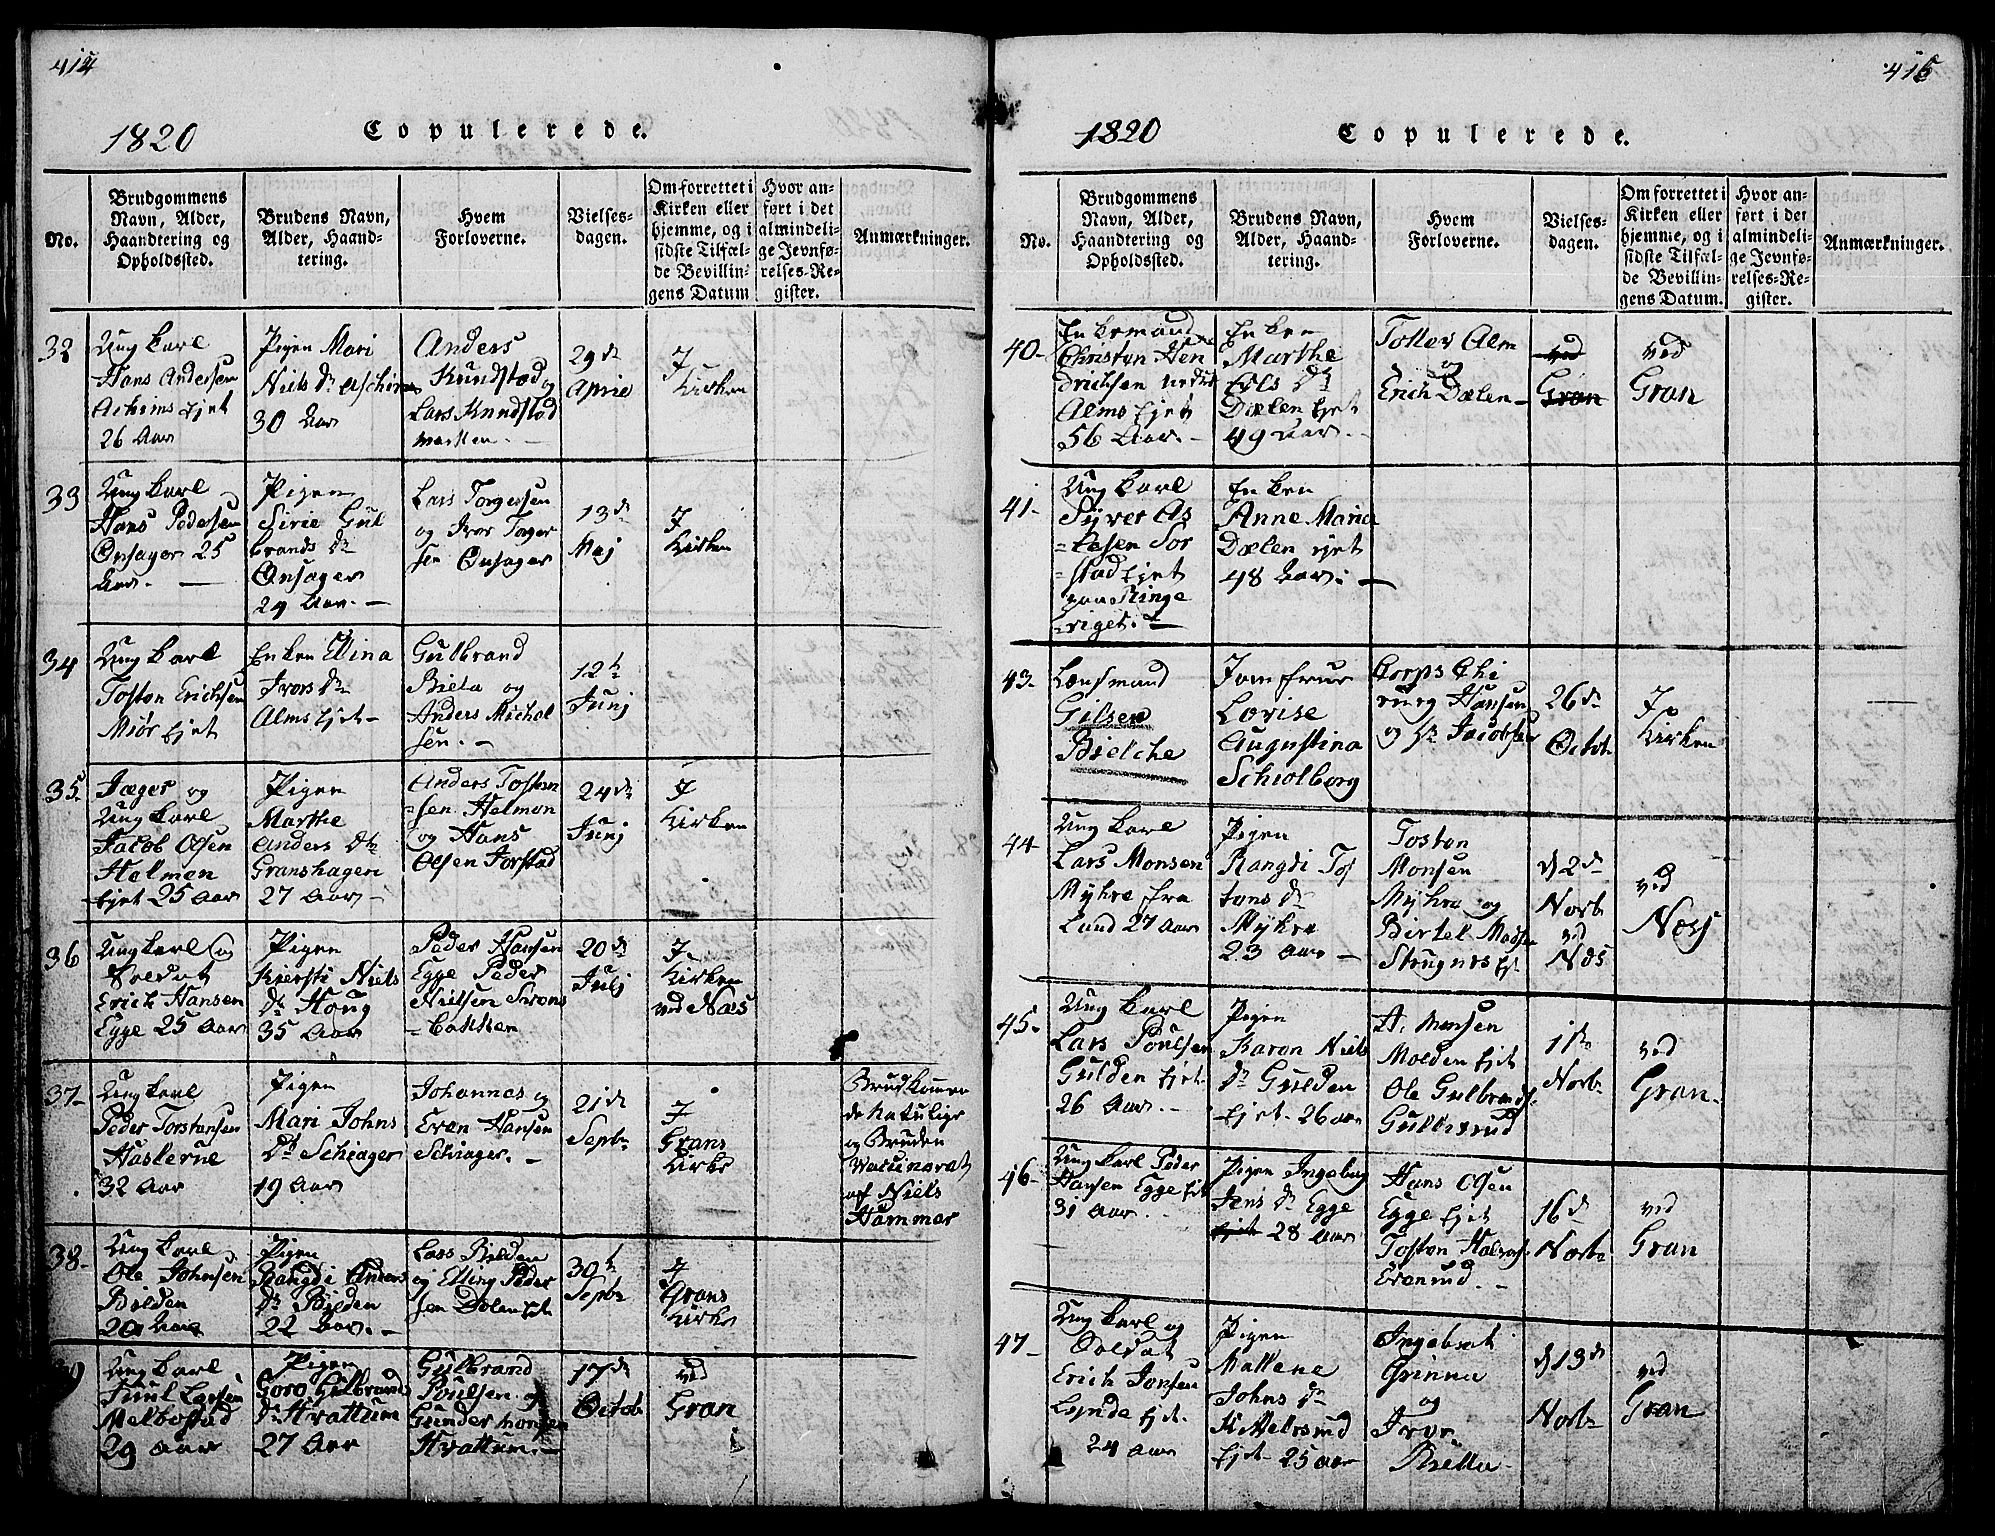 414
1820
Copulerede.
No.
Brudgommens
Navn, Alder,
Haandtering og
Opholdssted.
Brudens Navn,
Alder, Haand-
tering.
Hvem
Forloverne.
Vielses-
dagen.
Om forrettet i
Kirken eller
hjemme, og i
sidste Tilfæl-
de Bevillin-
gens Datum
Hvor an-
ført i det
almindeli-
ge Jevnfø-
relses-Re-
gister.
Anmærkninger.
32
Ung karl
Hans Andersen
Achims Ejet
26 Aar
Pigen Mari
Niels Dr
30 Aar
Anders
Kundstad og
Lars Kundstad
29de
April
I
Kirken
33
Ung karl
Hans Pedersen
Onsager 25
Aar. —
Pigen
Sirie Gul
brands Dr
Onsager
29 Aar. —
Lars Torgersen
og Iver Torger
sen Onsager
13de
Maj
I
Kirken
34
Ung karl
Toston Erichsen
Miør Ejet
Enken Elina
Ivers Dr
Alms Ejet —
Gulbrand
Biela og
Anders Michel
sen. —
12t
Junj
35
Jæger og
Ung karl
Jacob Olsen
Helmen
Ejet 25 Aar
Pigen
Marthe
Anders Dr
Granshagen
27 Aar
Anders Tosten
=sen Helmen
og Hans
Olsen Jorstad
24de
Junj
I
Kirken
36
Ung karl og
Soldat
Erich Hansen
Egge 25 Aar
Pigen
Kiersti Niels
Dr Houg
35 Aar
Peder Hansen
Egge Peder
Nielsen
=bakken
20de
Julj
I
Kirken
ved Næs
37
Ung karl
Peder Torstensen
Haslerne
32 Aar
Pigen
Mari Johns
Dr Schiager
19 Aar
Johannes og
Even Hansen
Schiager. —
21de
Septbr
I
Grans
Kirke
Brudkommen
de Natulige
og Bruden
Vaccineret
af Niels
Hammer
38
Ung karl
Ole Johnsen
Bilden
20 Aar
Pigen
Rangdi Anders
Dr Bilden
22 Aar. —
Lars Bilden
og Elling Peder
sen Dølen Ejet
30t
Septbr
I
Grans
Kirke
39
Ung karl
Juul Larsen
Melbostad
29 Aar
Pigen
Goro Gulbrands
Dr Hvattum
27 Aar
Gulbrand
Poulsen og
Gunder
Hvattum. —
17de
Octob
ved
Gran
415
1820
Copulerede.
No.
Brudgommens
Navn, Alder,
Haandtering og
Opholdssted.
Brudens Navn,
Alder, Haand-
tering.
Hvem
Forloverne.
Vielses-
dagen.
Om forrettet i
Kirken eller
hjemme, og i
sidste Tilfæl-
de Bevillin-
gens Datum.
Hvor an-
ført i det
almindeli-
ge Jevnfø-
relses-Re-
gister.
Anmærkninger.
40
Enkemand
Christen Hen
drichsen nedre
Alms Ejet
56 Aar. —
Enken
Marthe
Dr
Dælen Ejet
49 Aar. —
Tollev Alm
og
Erich Dælen —
ved
Gran
ved
Gran
41
Ung karl
Syver As
=lesen Tor
=stad Ejet
paa Ringe
=riget. —
Enken
Anne Maria
Dælen Ejet
48 Aar. —
43
Lænsmand
Gilsen
Bielche
Jomfrue
Lovise
Augustina
Schiolberg
Corps Chi
rurg Hansen
og Hr Jacobsen
26de
Octob
I
Kirken
44
Ung karl
Lars Monsen
Myhre fra
Land 27 Aar
Pigen
Rangdi Tos
tens Dr
Myhre
23 Aar —
Tosten
Monsen
Myhre og
Birtel Madsen
d 2de
Novb
ved
Næs
ved
Næs
45
Ung karl
Lars Poulsen
Gulden Ejet
26 Aar. —
Pigen
Karen Niels
Dr Gulden
Ejet 26 aar
A. Monsen
Molden Ejet
Ole Gulbrands
Gulbrud
11te
Novbr
ved
Gran.
46
Ung karl Peder
Hansen Egge Ejet
31 Aar.
Pigen Ingeborg
Jens Dr Egge
Ejet 28 Aar
Hans Olsen
Egge Ejet
Toston Halvors
Evenrud. —
16de
Novbr
ved
Gran
47
Ung karl og
Soldat
Erich Jonsen
Lynde Ejet.
24 Aar
Pigen
Mallene
Johns Dr
Kittelsrud
Ejet 25 aar
Ingebret
Grinna
og
Iver
Biella
d 13de
Novbr
ved
Gran